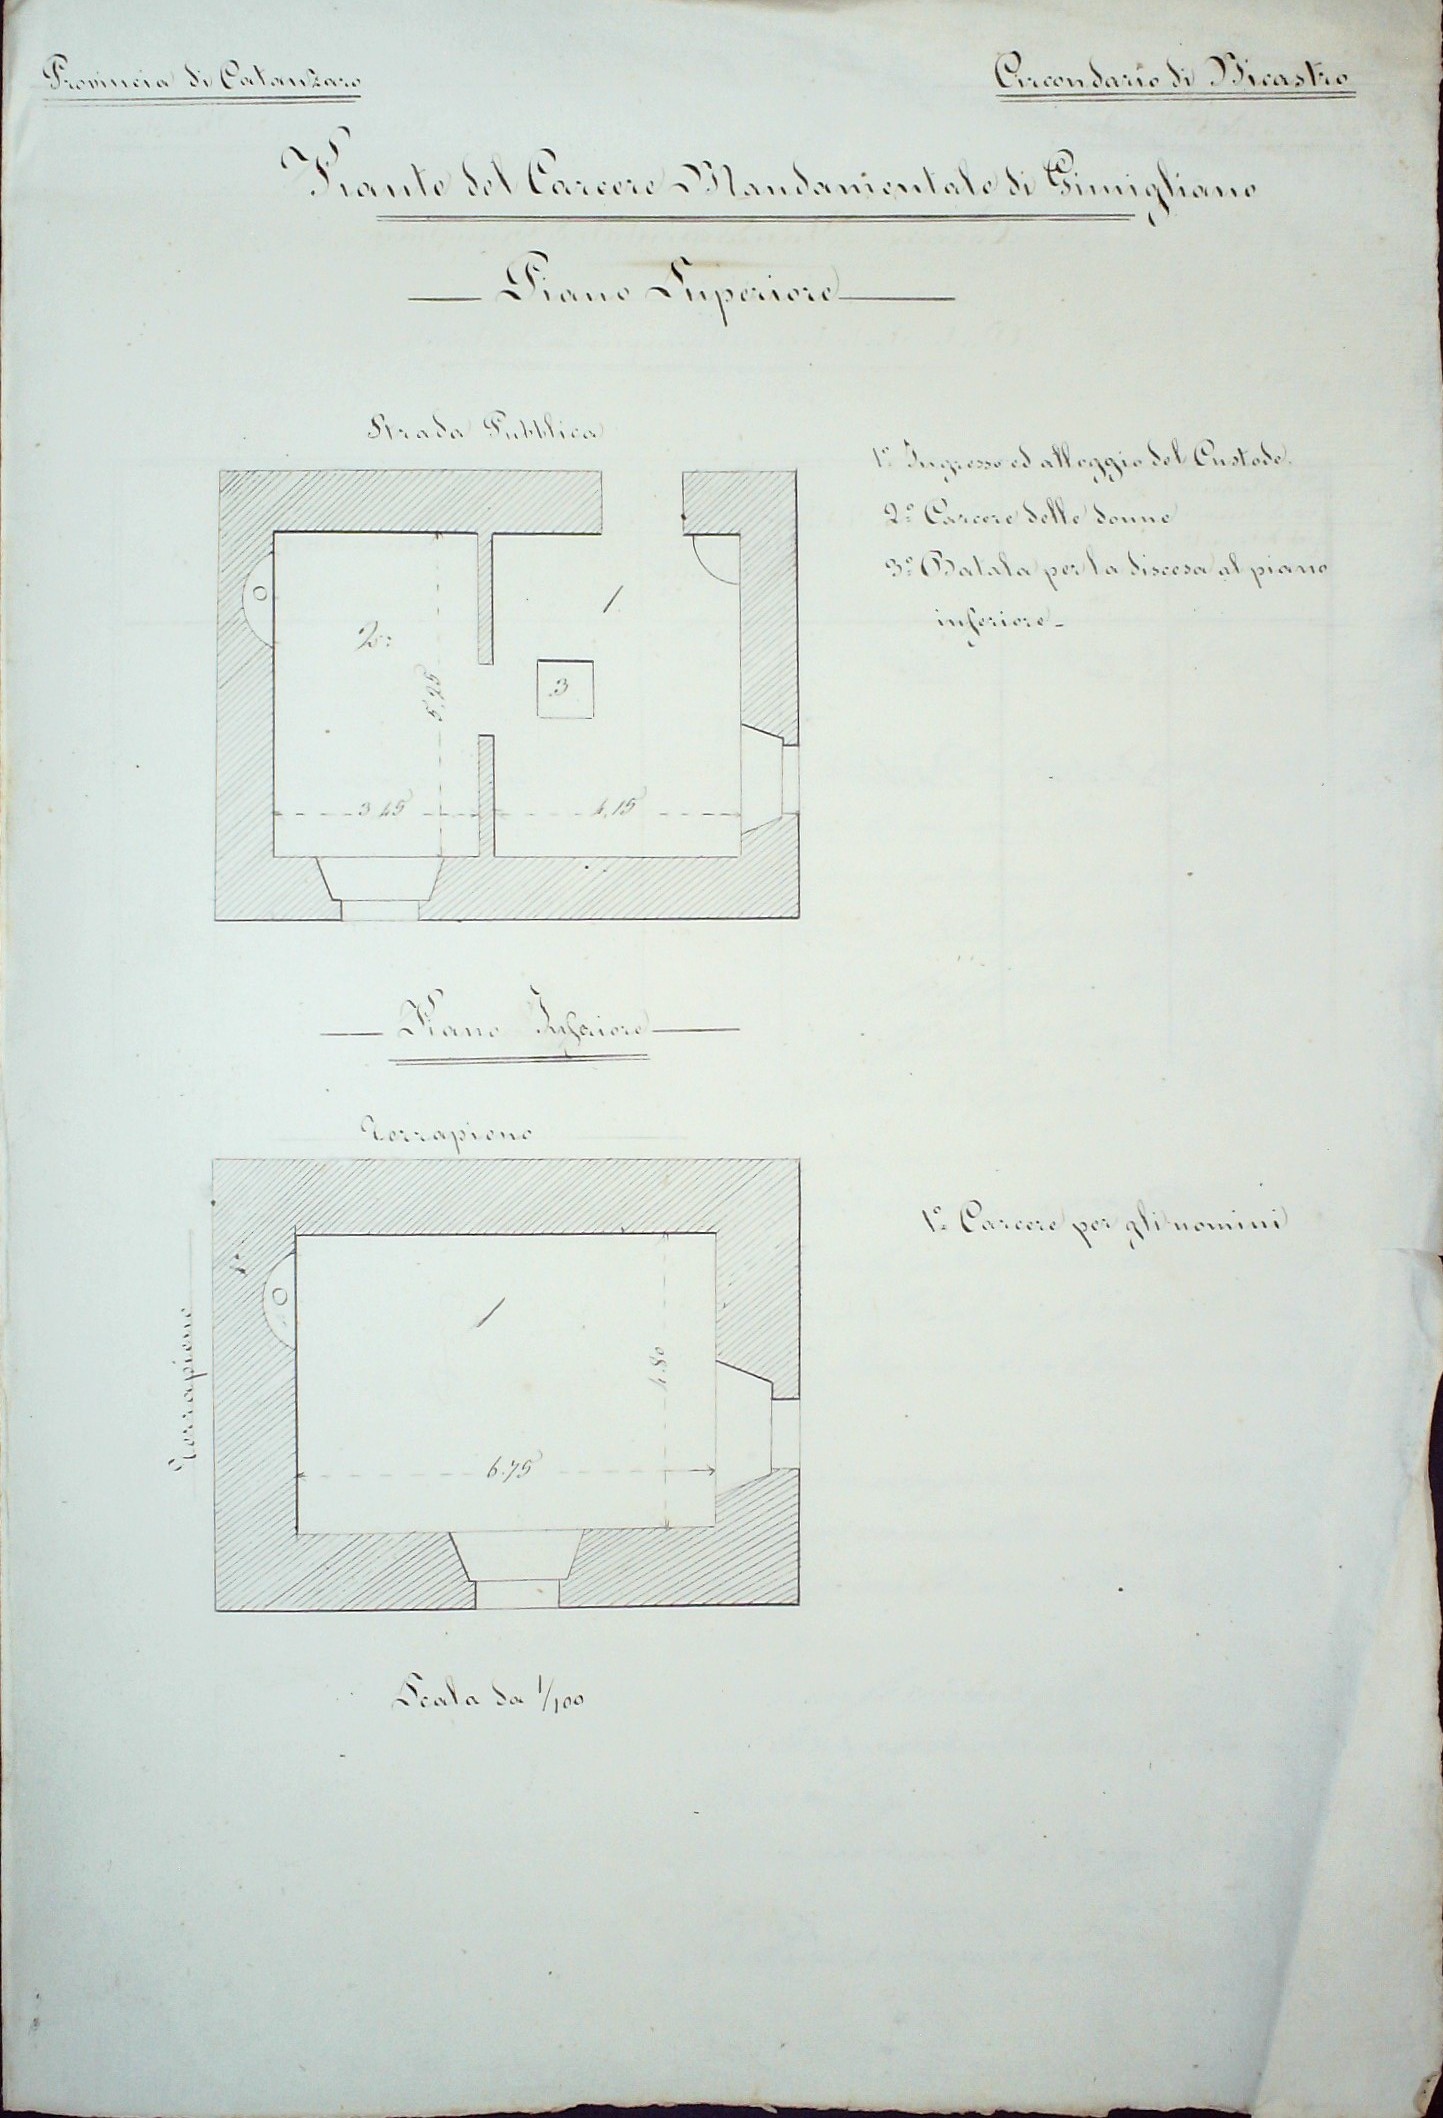 Provincia di Catanzaro
Circondario di Nicastro
Piante del Carcere Mandamentale di Gimigliano
Piano Superiore
Strada Pubblica
1º Ingresso ed alloggio del Custode.
2º Carcere delle donne
3º Batala per la discesa al piano
inferiore
2º:
1
3
5,25
3,45
4,15
Piano Inferiore
Terrapieno
1º Carcere per gli uomini
Terrapieno
1
4.80
6.75
Scala da 1/100